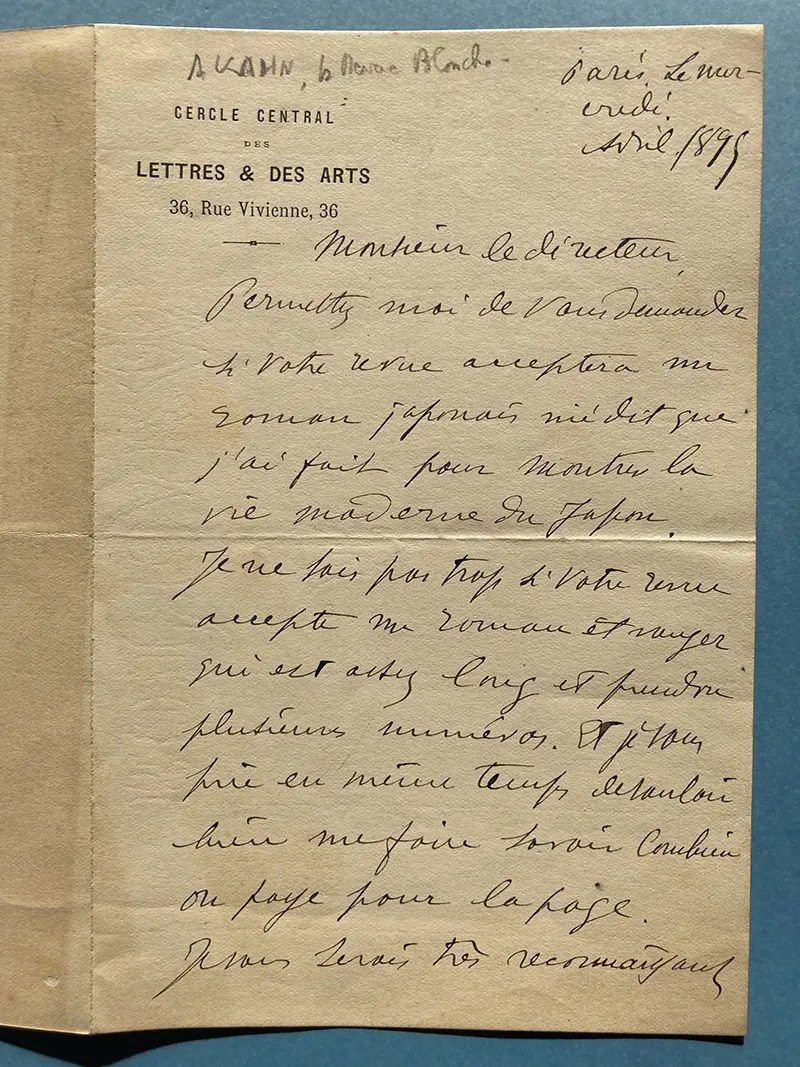 A KAHN, la Revue Blanche
Paris. Le mer-
credi.
Avril. 1895
CERCLE CENTRAL
DES
LETTRES & DES ARTS
36, Rue Vivienne, 36
Monsieur le directeur,
Permettez moi de vous demander
si votre revue acceptera un
roman japonais inédit que
j'ai fait pour montrer la
vie moderne du Japon.
Je ne sais pas trop si votre revue
accepte un roman étranger
qui est assez long et prendra
plusieurs numéros. Et je vous
prie en même temps de vouloir
bien me faire savoir combien
on paye pour la page.
Je vous serais très reconnaissant